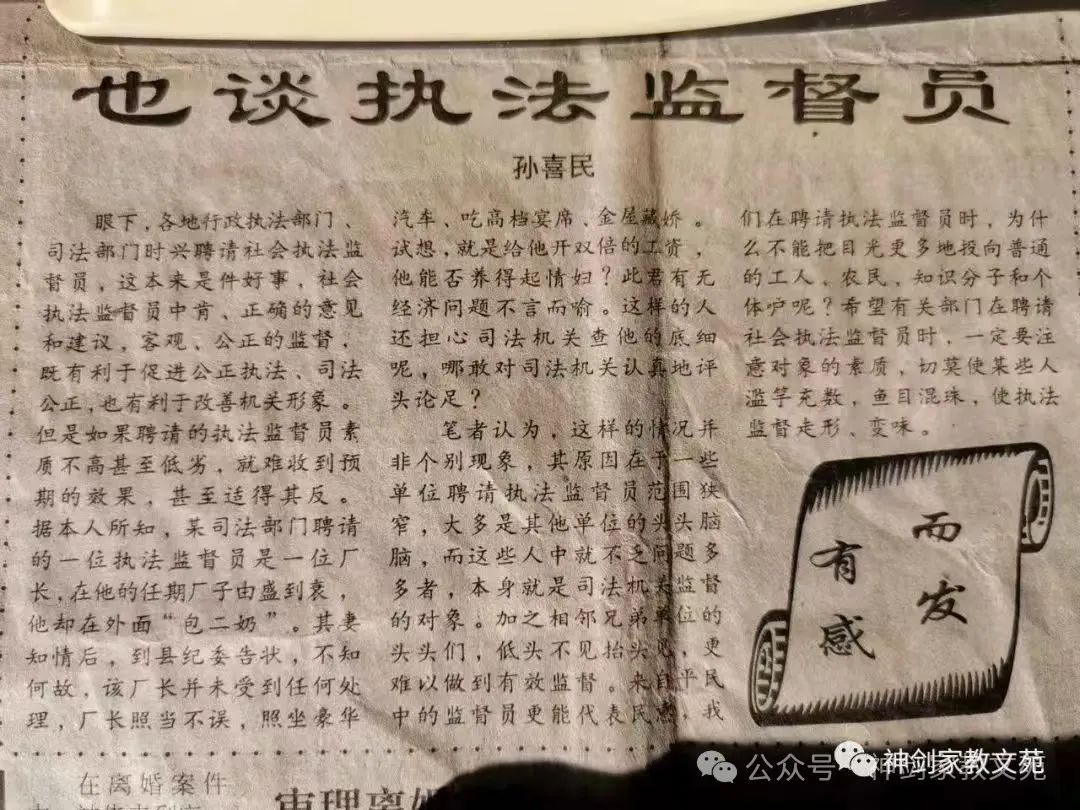 也谈执法监督员
孙喜民
眼下，各地行政执法部门、
司法部门时兴聘请社会执法监
督员，这本来是件好事，社会
执法监督员中肯、正确的意见
和建议，客观、公正的监督，
既有利于促进公正执法、司法
公正，也有利于改善机关形象。
但是如果聘请的执法监督员素
质不高甚至低劣，就难收到预
期的效果，甚至适得其反。
据本人所知，某司法部门聘请
的一位执法监督员是一位厂
长，在他的任期厂子由盛到衰，
他却在外面“包二奶”。其妻
知情后，到县纪委告状，不知
何故，该厂长并未受到任何处
理，厂长照当不误，照坐豪华
汽车、吃高档宴席、金屋藏娇。
试想，就是给他开双倍的工资，
他能否养得起情妇？此君有无
经济问题不言而喻。这样的人
还担心司法机关查他的底细
呢，哪敢对司法机关认真地评
头论足？
笔者认为，这样的情况并
非个别现象，其原因在于一些
单位聘请执法监督员范围狭
窄，大多是其他单位的头头脑
脑，而这些人中就不乏问题多
多者，本身就是司法机关监督
的对象。加之相邻兄弟单位的
头头们，低头不见抬头见，更
难以做到有效监督。来自平民
中的监督员更能代表民意，我
们在聘请执法监督员时，为什
么不能把目光更多地投向普通
的工人、农民，知识分子和个
体户呢？希望有关部门在聘请
社会执法监督员时，一定要注
意对象的素质，切莫使某些人
滥竽充数，鱼目混珠，使执法
监督走形、变味。
有感
而发
在离婚案件
审理离婚
公众号·神剑家教文苑
神剑家教文苑